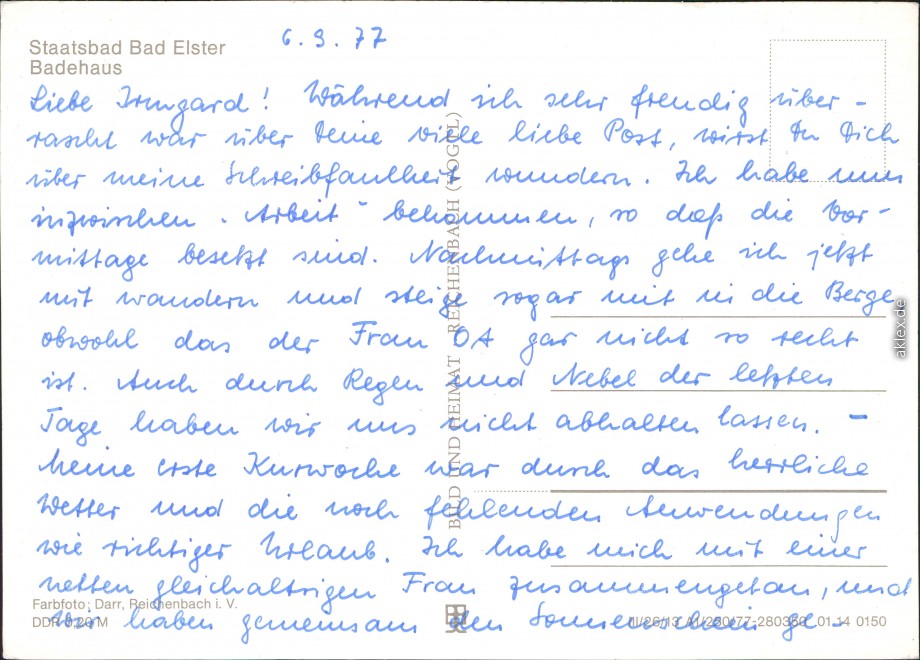 Staatsbad Bad Elster
Badehaus
6.9.77
Liebe Irmgard! Während ich sehr freudig über-
rascht war über Deine viele liebe Post, wirst Du Dich
über meine Schreibfaulheit wundern. Ich habe nun
inzwischen "Arbeit" bekommen, so daß die Vor-
mittage besetzt sind. Nachmittags gehe ich jetzt
mit wandern und steige sogar mit in die Berge
obwohl das der Frau OA gar nicht so recht
ist. Auch durch Regen und Nebel der letzten
Tage haben wir uns nicht abhalten lassen. –
Meine erste Kurwoche war durch das herrliche
Wetter und die noch fehlenden Anwendungen
wie richtiger Urlaub. Ich habe mich mit einer
netten gleichaltrigen Frau zusammengetan, und
wir haben gemeinsam den Sonnenschein ge-
Farbfoto: Darr, Reichenbach i. V.
DDR 0,20 M
BILD UND HEIMAT REICHENBACH (VOGTL)
01 14 0150
aklex.de